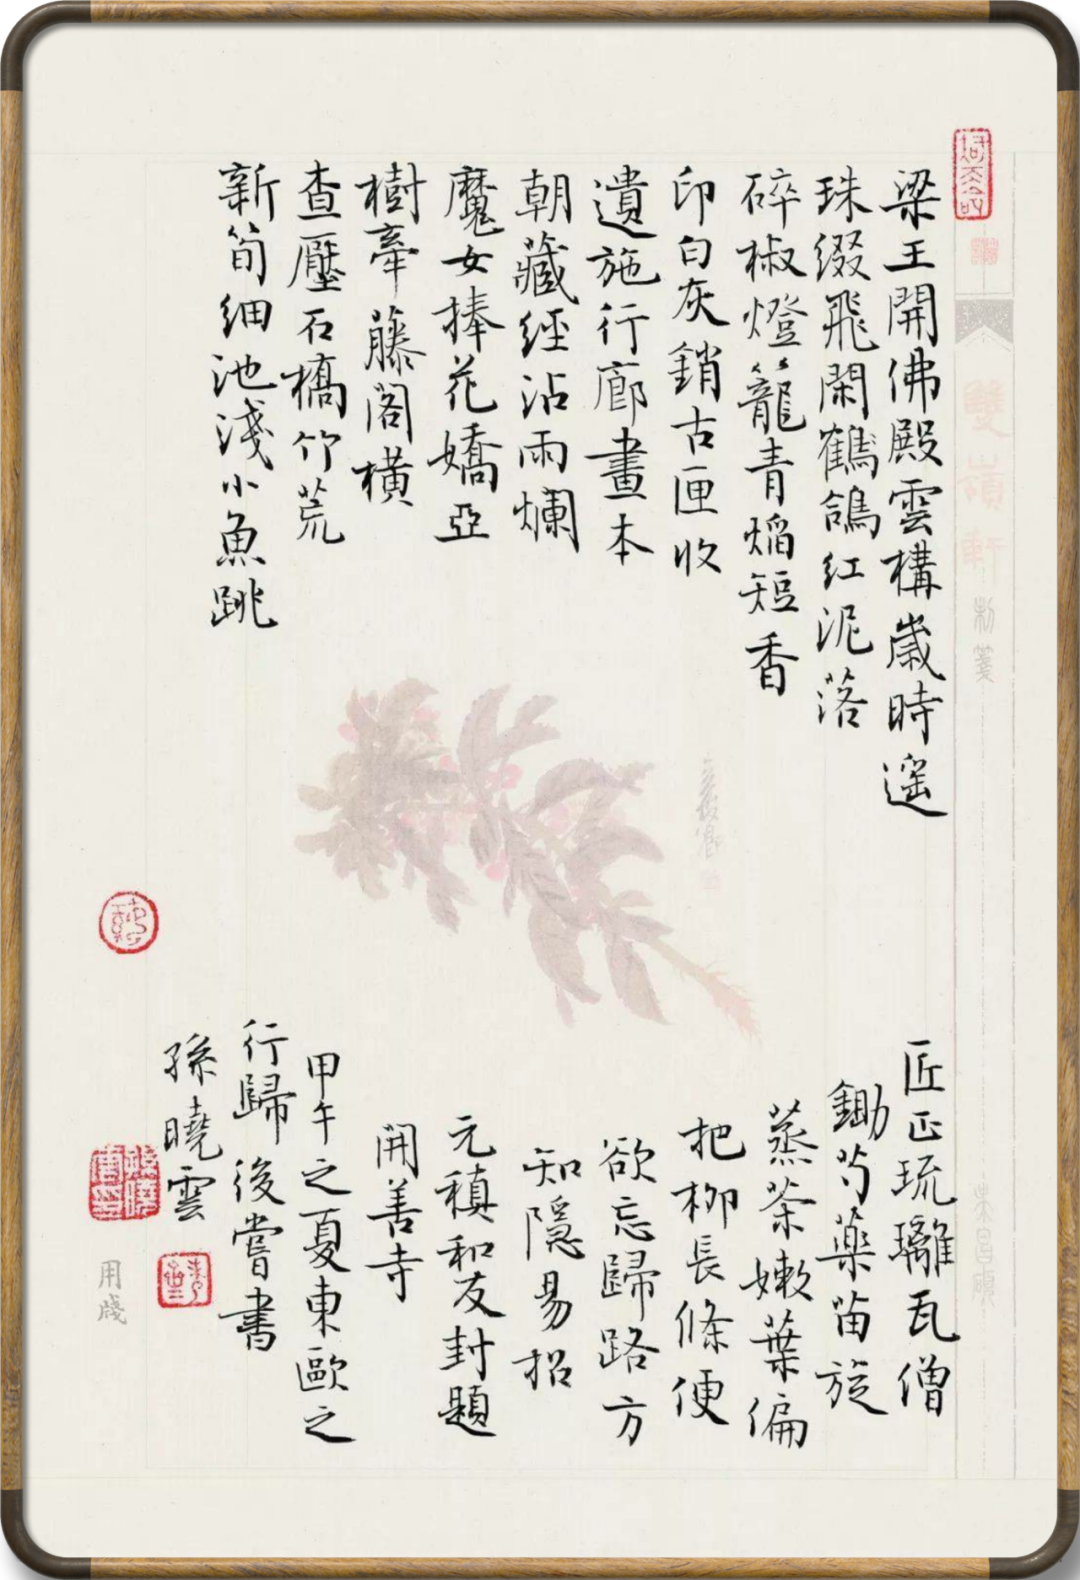 梁王開佛殿雲構歲時遥
珠缀飛閑鶴鴿紅泥落
碎椒燈籠青焰短香
印白灰銷古匣收
遺施行廊畫本
朝藏經沾雨爛
魔女捧花嬌亞
樹牽藤閣橫
查壓石橋竹荒
新筍細池淺小魚跳
匠正琉璃瓦僧
鋤芍藥苗旋
蒸茶嫩葉偏
把柳長條便
欲忘歸路方
知隱易招
元稹和友封題
開善寺
甲午之夏東歐之
行歸後嘗書
孫曉雲
雙嶺軒制箋
用牋